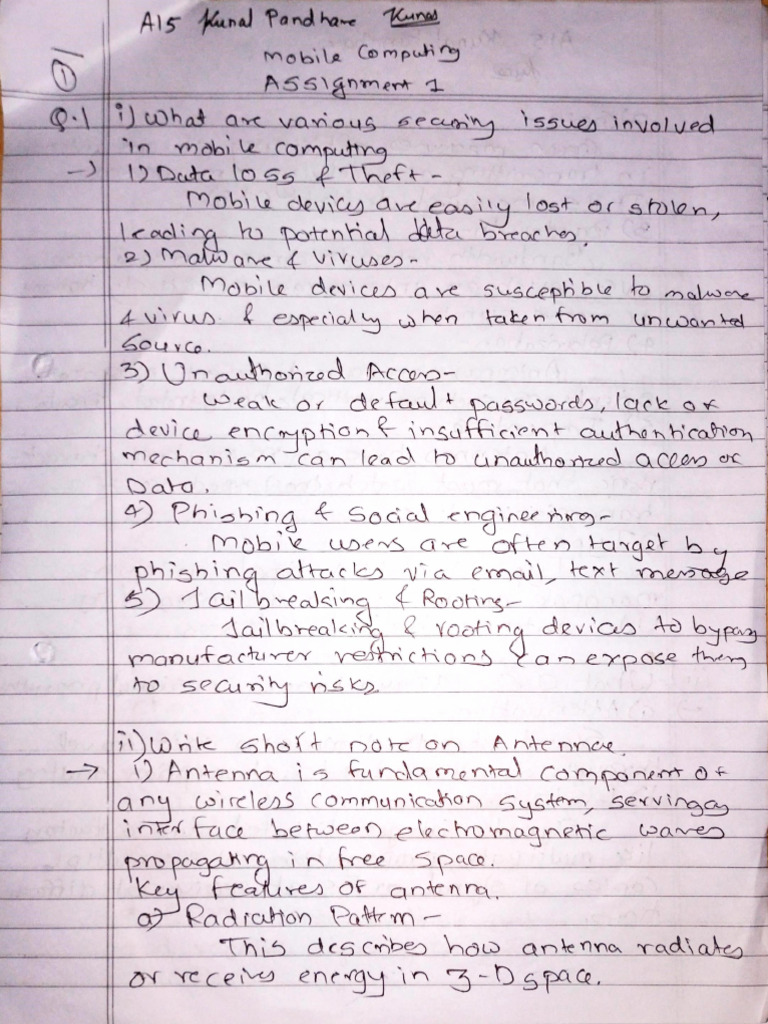 A15 Kunal Pandhare Kunal
Mobile Computing
①
Assignment 1
Q.1 i) What are various security issues involved
in mobile computing
→ 1) Data loss & Theft -
Mobile devices are easily lost or stolen,
leading to potential data breaches.
2) Malware & Viruses -
Mobile devices are susceptible to malware
& virus & especially when taken from unwanted
Source.
3) Unauthorized Access -
Weak or default passwords, lack of
device encryption & insufficient authentication
mechanism can lead to unauthorized access or
Data.
4) Phishing & Social engineering -
Mobile users are often target by
phishing attacks via email, text message
5) Jailbreaking & Rooting -
Jailbreaking & rooting devices to bypass
manufacturer restrictions can expose them
to security risks.
ii) Write short note on Antennae.
→ i) Antenna is fundamental component of
any wireless communication system, serving as
interface between electromagnetic waves
propagating in free space.
Key features of antenna.
a) Radiation Pattern -
This describes how antenna radiates
or receives energy in 3-D space.